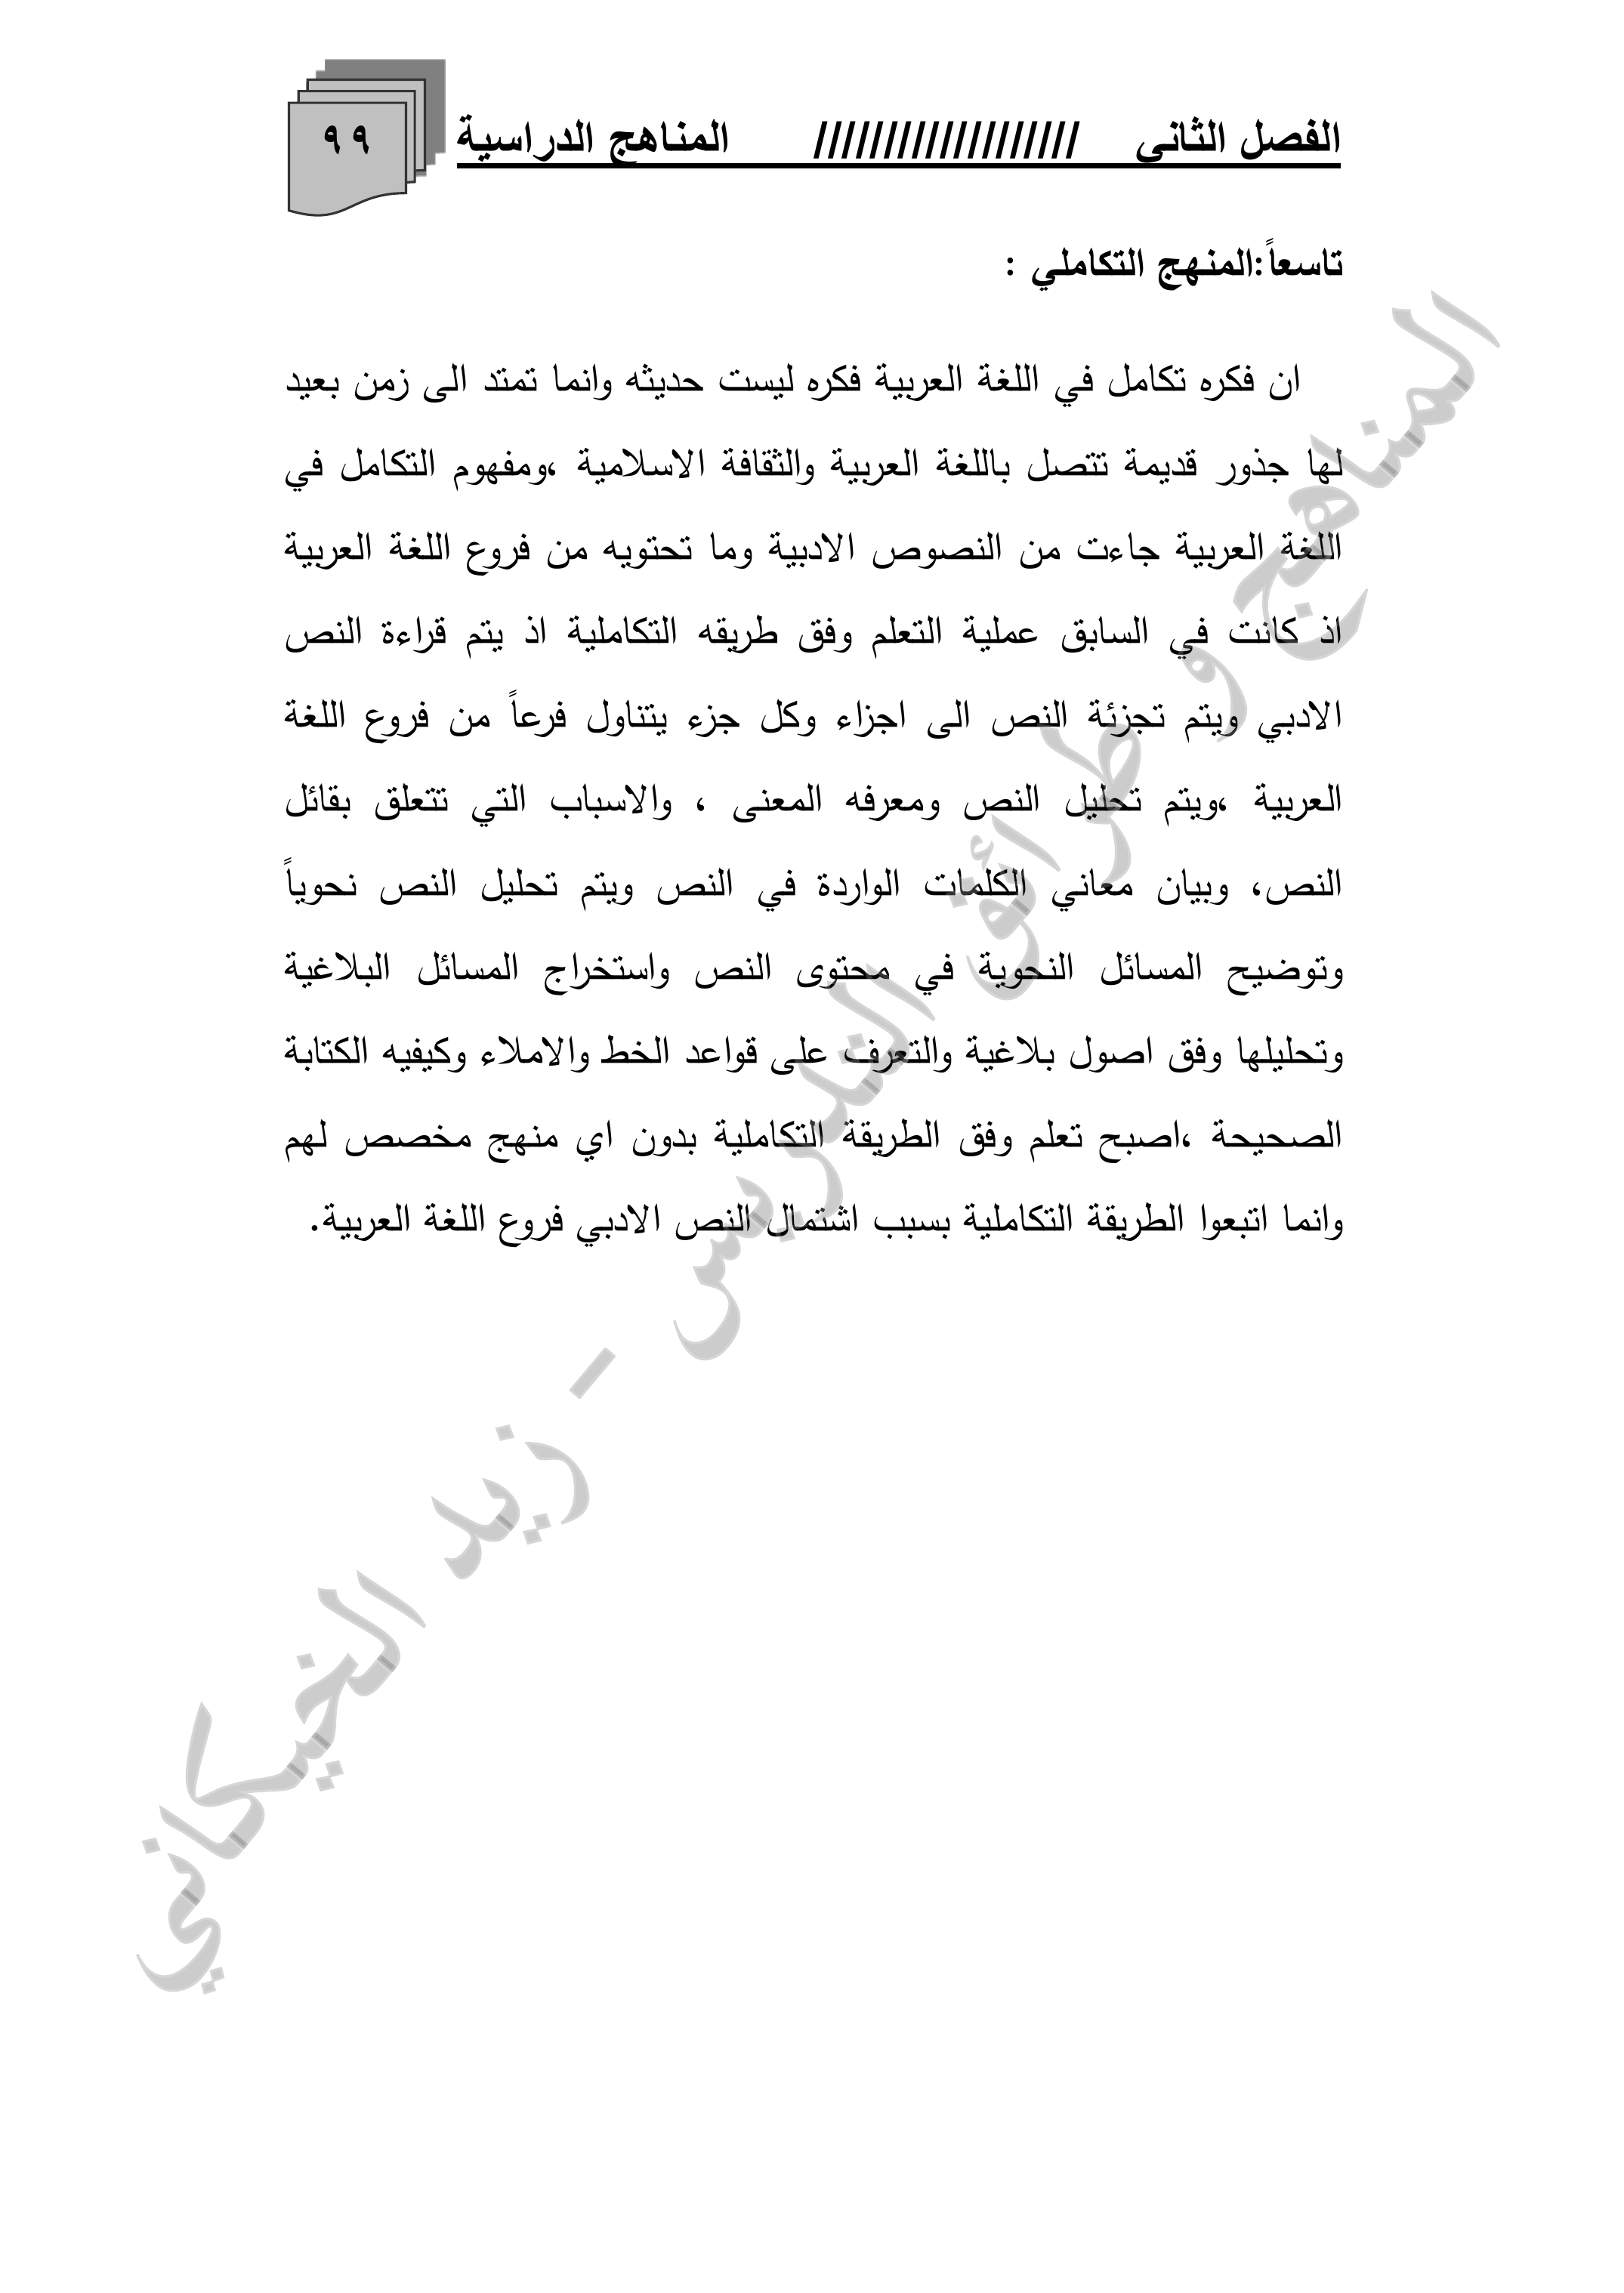 الفصل الثاني /////////////////// المناهج الدراسية ٩٩
تاسعاً:المنهج التكاملي :
ان فكره تكامل في اللغة العربية فكره ليست حديثه وانما تمتد الى زمن بعيد
لها جذور قديمة تتصل باللغة العربية والثقافة الاسلامية ،ومفهوم التكامل في
اللغة العربية جاءت من النصوص الادبية وما تحتويه من فروع اللغة العربية
اذ كانت في السابق عملية التعلم وفق طريقه التكاملية اذ يتم قراءة النص
الادبي ويتم تجزئة النص الى اجزاء وكل جزء يتناول فرعاً من فروع اللغة
العربية ،ويتم تحليل النص ومعرفه المعنى ، والاسباب التي تتعلق بقائل
النص، وبيان معاني الكلمات الواردة في النص ويتم تحليل النص نحوياً
وتوضيح المسائل النحوية في محتوى النص واستخراج المسائل البلاغية
وتحليلها وفق اصول بلاغية والتعرف على قواعد الخط والاملاء وكيفيه الكتابة
الصحيحة ،اصبح تعلم وفق الطريقة التكاملية بدون اي منهج مخصص لهم
وانما اتبعوا الطريقة التكاملية بسبب اشتمال النص الادبي فروع اللغة العربية.
المناهج و طرائق التدريس - زيد الخيكاني